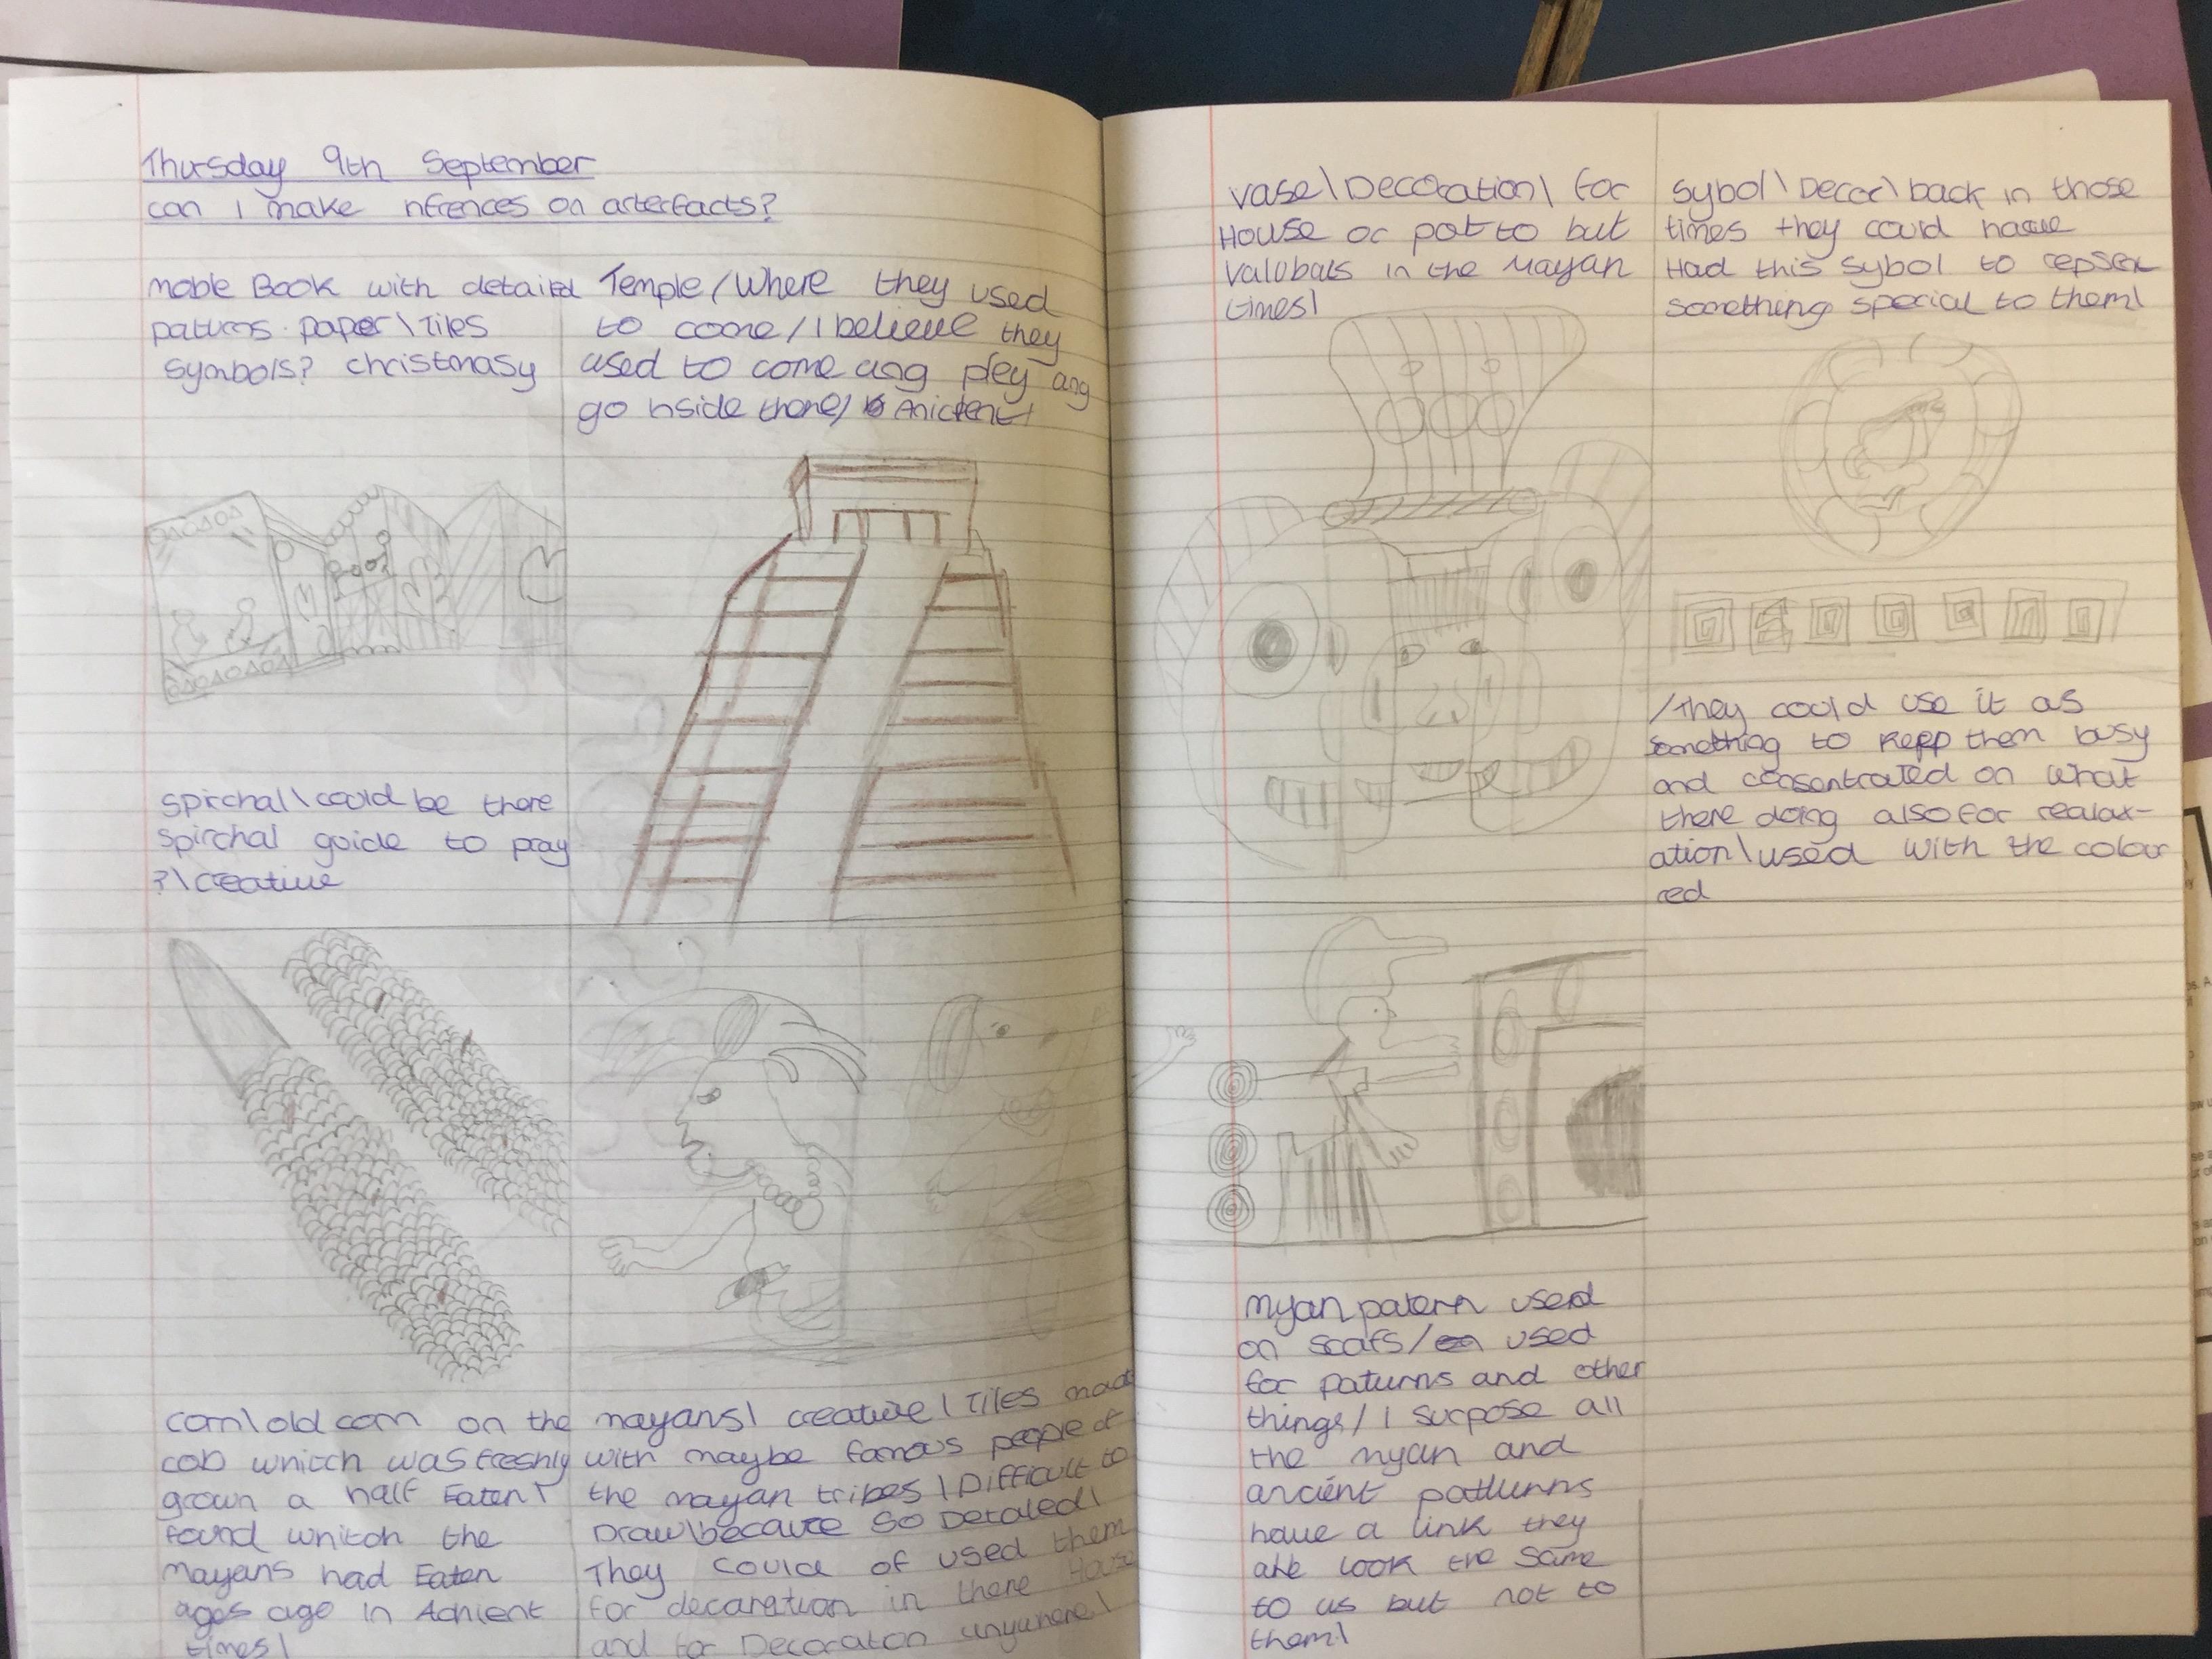 Thursday 9th September
can I make nfrences on arterfacts?
noble Book with detailed
paturns. paper\Tiles
symbols? christmasy
Temple/Where they used
to come/I believe they
used to come ang pley ang
go nside there/ Anictent/
spirchal\could be there
spirchal guide to pray
?\creative
corn\old corn on the
cob whitch was freshly
grown a half Eaten\
found whitch the
Mayans had Eaten
ages ago in Achient
times\
mayans\ creative\Tiles made
with maybe famous people of
the mayan tribes\Difficult to
Draw\because so Detaled\
They could of used them
for decaration in there House
and for Decoraton anywhere\
vase\Decoration\ for
House or pot to but
valubals in the Mayan
times\
Sybol\Decor\back in those
times they could have
Had this sybol to repsex
something special to them\
/They could use it as
something to kepp them busy
and consentrated on what
there doing also for realax-
ation\used with the colour
red
myan patern used
on scafs/ used
for paturns and other
things/I surpose all
the myan and
ancient patturnns
have a link they
look the same
to us but not to
them\